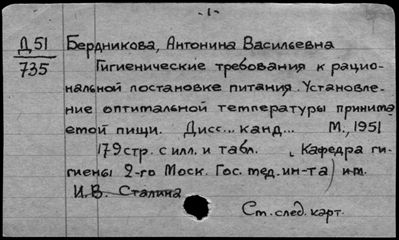 -1-
Д 51 Бердникова, Антонина Васильевна
735 Гигиенические требования к рацио-
нальной постановке питания. Установле-
ние оптимальной температуры принима
емой пищи. Дисс... канд... М., 1951
179 стр. с илл. и табл. (Кафедра ги-
гиены 2-го Моск. Гос. мед. ин-та) им.
И.В. Сталина
См. след. карт.